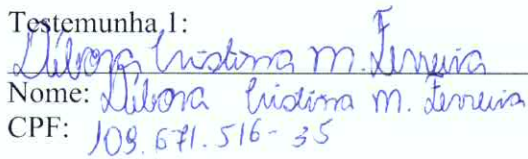 Testemunha 1:
Débora Cristina M. Ferreira
Nome: Débora Cristina M. Ferreira
CPF: 109.671.516-35